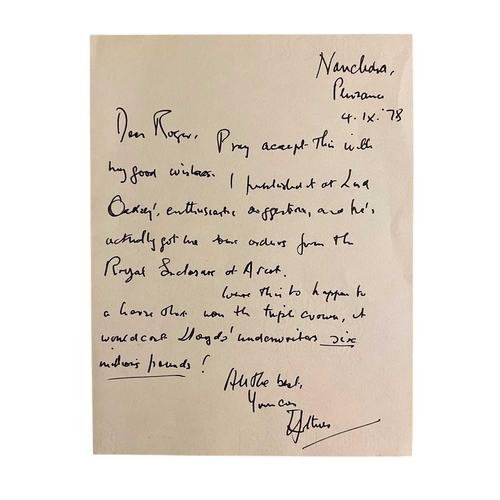 Nancledra,
Penzance
4.IX.'78
Dear Roger, Pray accept this with
my good wishes. I published it at Lord
enthusiastic suggestion, and he's
actually got me some orders from the
Royal Enclosure at Ascot.
Were this to happen to
a horse that won the triple crown, it
would cost Lloyds' underwriters six
millions pounds!
All the best,
Yours